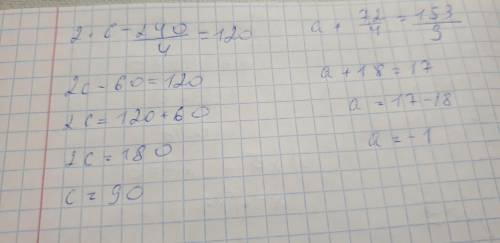 2 · c - 240/4 = 120
2c - 60 = 120
2c = 120 + 60
2c = 180
c = 90
a + 72/4 = 153/9
a + 18 = 17
a = 17 - 18
a = -1